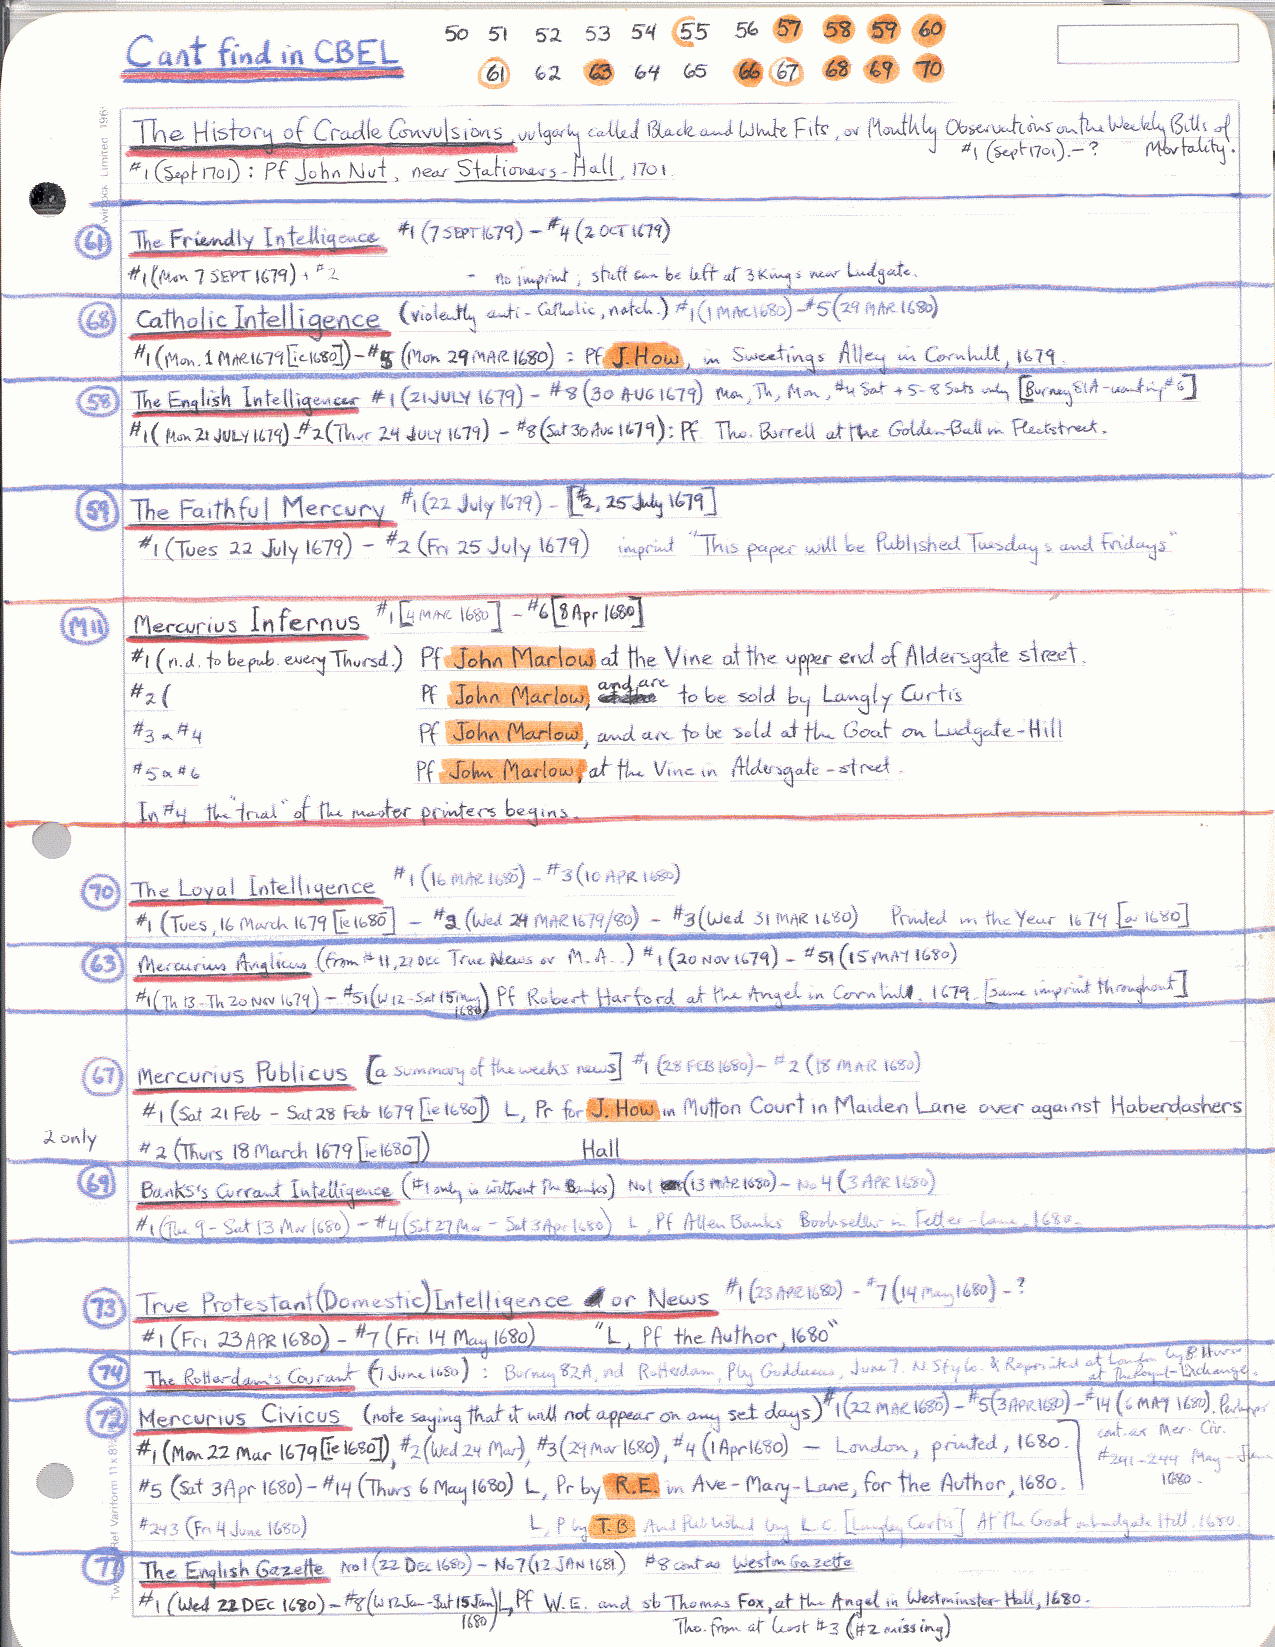 50 51 52 53 54 55 56 57 58 59 60
Cant find in CBEL
61 62 63 64 65 66 67 68 69 70
The History of Cradle Convulsions, vulgarly called Black and White Fits, or Monthly Observations on the Weekly Bills of Mortality.
#1 (Sept 1701).–?
#1 (Sept 1701): Pf John Nut, near Stationers-Hall, 1701.
61 The Friendly Intelligence #1 (7 SEPT 1679) – #4 (2 OCT 1679)
#1 (Mon 7 SEPT 1679) + #2 - no imprint; stuff can be left at 3 Kings near Ludgate.
68 Catholic Intelligence (violently anti-Catholic, natch.) #1 (1 MAR 1680) – #5 (29 MAR 1680)
#1 (Mon. 1 MAR 1679 [ie 1680]) – #5 (Mon 29 MAR 1680) : Pf J. How, in Sweetings Alley in Cornhill, 1679.
58 The English Intelligencer #1 (21 JULY 1679) – #8 (30 AUG 1679) Mon, Th, Mon, #4 Sat + 5-8 Sats only [Burney 81A - wanting #6]
#1 (Mon 21 JULY 1679) – #2 (Thur 24 JULY 1679) – #8 (Sat 30 Aug 1679): Pf Tho. Burrell at the Golden-Ball in Fleetstreet.
59 The Faithful Mercury #1 (22 July 1679) – [#2, 25 July 1679]
#1 (Tues 22 July 1679) – #2 (Fri 25 July 1679) imprint "This paper will be Published Tuesdays and Fridays"
M11 Mercurius Infernus #1 [4 MAR 1680] – #6 [8 Apr 1680]
#1 (n.d. to be pub. every Thursd.) Pf John Marlow at the Vine at the upper end of Aldersgate street.
#2 ( Pf John Marlow, and are to be sold by Langly Curtis
#3 #4 Pf John Marlow, and are to be sold at the Goat on Ludgate-Hill
#5 #6 Pf John Marlow, at the Vine in Aldersgate-street.
In #4 the "trial" of the master printers begins.
70 The Loyal Intelligence #1 (16 MAR 1680) – #3 (10 APR 1680)
#1 (Tues, 16 March 1679 [ie 1680] – #2 (Wed 24 MAR 1679/80) – #3 (Wed 31 MAR 1680) Printed in the Year 1679 [or 1680]
63 Mercurius Anglicus (from #11, 27 DEC True News or M.A..) #1 (20 NOV 1679) – #51 (15 MAY 1680)
#1 (Th 13-Th 20 Nov 1679) – #51 (W 12 - Sat 15 May 1680) Pf Robert Harford at the Angel in Cornhill. 1679. [Same imprint throughout]
67 Mercurius Publicus [a summary of the weeks news] #1 (28 FEB 1680) – #2 (18 MAR 1680)
#1 (Sat 21 Feb – Sat 28 Feb 1679 [ie 1680]) L, Pr for J. How in Mutton Court in Maiden Lane over against Haberdashers
2 only #2 (Thurs 18 March 1679 [ie 1680]) Hall
69 Banks's Currant Intelligence (#1 only is without the Banks) No 1 (13 MAR 1680) – No 4 (3 APR 1680)
#1 (Tue 9 - Sat 13 Mar 1680) – #4 (Sat 27 Mar – Sat 3 Apr 1680) L, Pf Allen Banks Bookseller in Fetter-Lane, 1680.
73 True Protestant (Domestic) Intelligence or News #1 (23 APR 1680) – #7 (14 May 1680) – ?
#1 (Fri 23 APR 1680) – #7 (Fri 14 May 1680) "L, Pf the Author, 1680"
74 The Rotterdam's Courant (7 June 1680) : Burney 82A, Rotterdam, P by Goddaeus, June 7. N. Stylo. & Reprinted at London by B. Harris at the Royal-Exchange.
72 Mercurius Civicus (note saying that it will not appear on any set days) #1 (22 MAR 1680) – #5 (3 APR 1680) – #14 (6 MAY 1680). Perhaps
cont. as Mer. Civ.
#241-244 May - June
1680.
#1 (Mon 22 Mar 1679 [ie 1680]), #2 (Wed 24 Mar), #3 (29 Mar 1680), #4 (1 Apr 1680) – London, printed, 1680.
#5 (Sat 3 Apr 1680) – #14 (Thurs 6 May 1680) L, Pr by R.E. in Ave-Mary-Lane, for the Author, 1680.
#243 (Fri 4 June 1680) L, P by T.B. And Published by L.C. [Langley Curtis] At the Goat on Ludgate Hill, 1680.
77 The English Gazette No 1 (22 DEC 1680) – No 7 (12 JAN 1681) #8 cont as Weston Gazette
#1 (Wed 22 DEC 1680) – #8 (W 12 Jan - Sat 15 Jan 1680) L, Pf W.E. and sb Thomas Fox, at the Angel in Westminster-Hall, 1680.
Tho. from at least #3 (#2 missing)